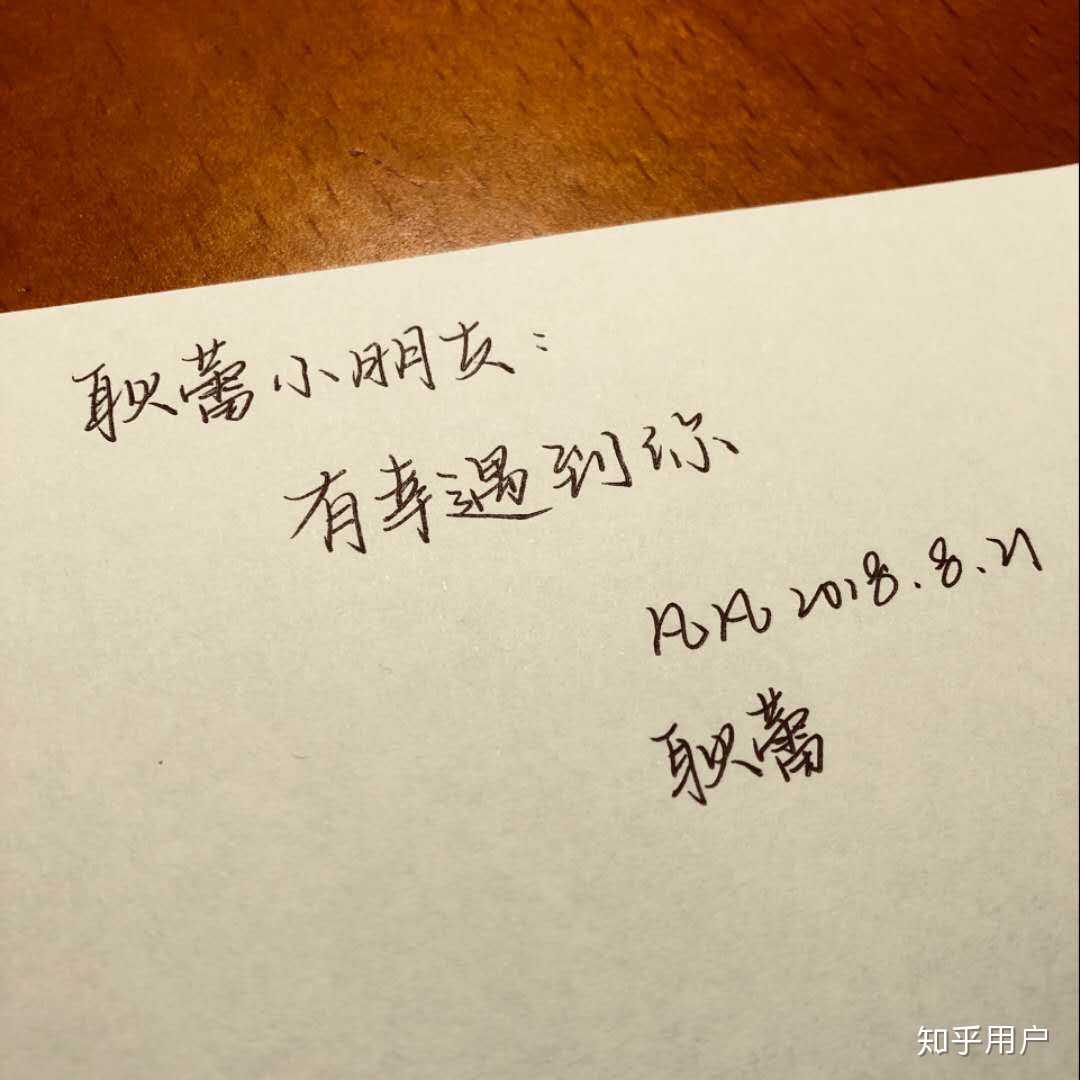 耿蕾小朋友：
有幸遇到你
凡凡 2018.8.21
耿蕾
知乎用户